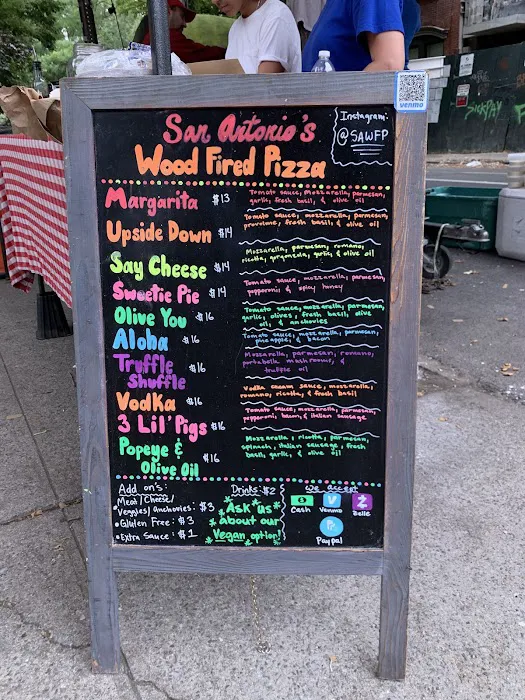 San Antonio's
Wood Fired Pizza
Instagram:
@SAWFP
venmo
Margarita $13
Tomato sauce, mozzarella, parmesan,
garlic, fresh basil, & olive oil
Upside Down $14
Tomato sauce, mozzarella, parmesan,
provolone, fresh basil, & olive oil
Say Cheese $14
Mozzarella, parmesan, romano,
ricotta, gorgonzola, garlic, & olive oil
Sweetie Pie $14
Tomato sauce, mozzarella, parmesan
pepperoni & spicy honey
Olive You $16
Tomato sauce, mozzarella, parmesan,
garlic, olives, fresh basil, olive
oil, & anchovies
Aloha $16
Tomato sauce, mozzarella, parmesan,
pineapple, & bacon
Truffle
Shuffle $16
Mozzarella, parmesan, romano,
portabella mushrooms, &
truffle oil
Vodka $16
Vodka cream sauce, mozzarella,
romano, ricotta, & fresh basil
3 Lil' Pigs $16
Tomato sauce, mozzarella, parmesan,
pepperoni, bacon, & italian sausage
Popeye &
Olive Oil $16
Mozzarella, ricotta, parmesan,
spinach, italian sausage, fresh
basil, garlic, & olive oil
Add on's:
Meat/Cheese/
Veggies/Anchovies: $3
Gluten Free: $3
Extra Sauce: $1
Drinks: $2
Ask us
about our
Vegan option!
We accept
Cash Venmo Zelle
Paypal
SICKPAY